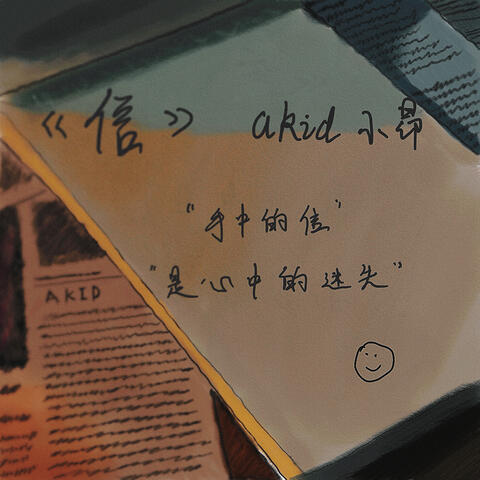 《信》 akid 小昂
"手中的信"
"是心中的迷失"
AKID